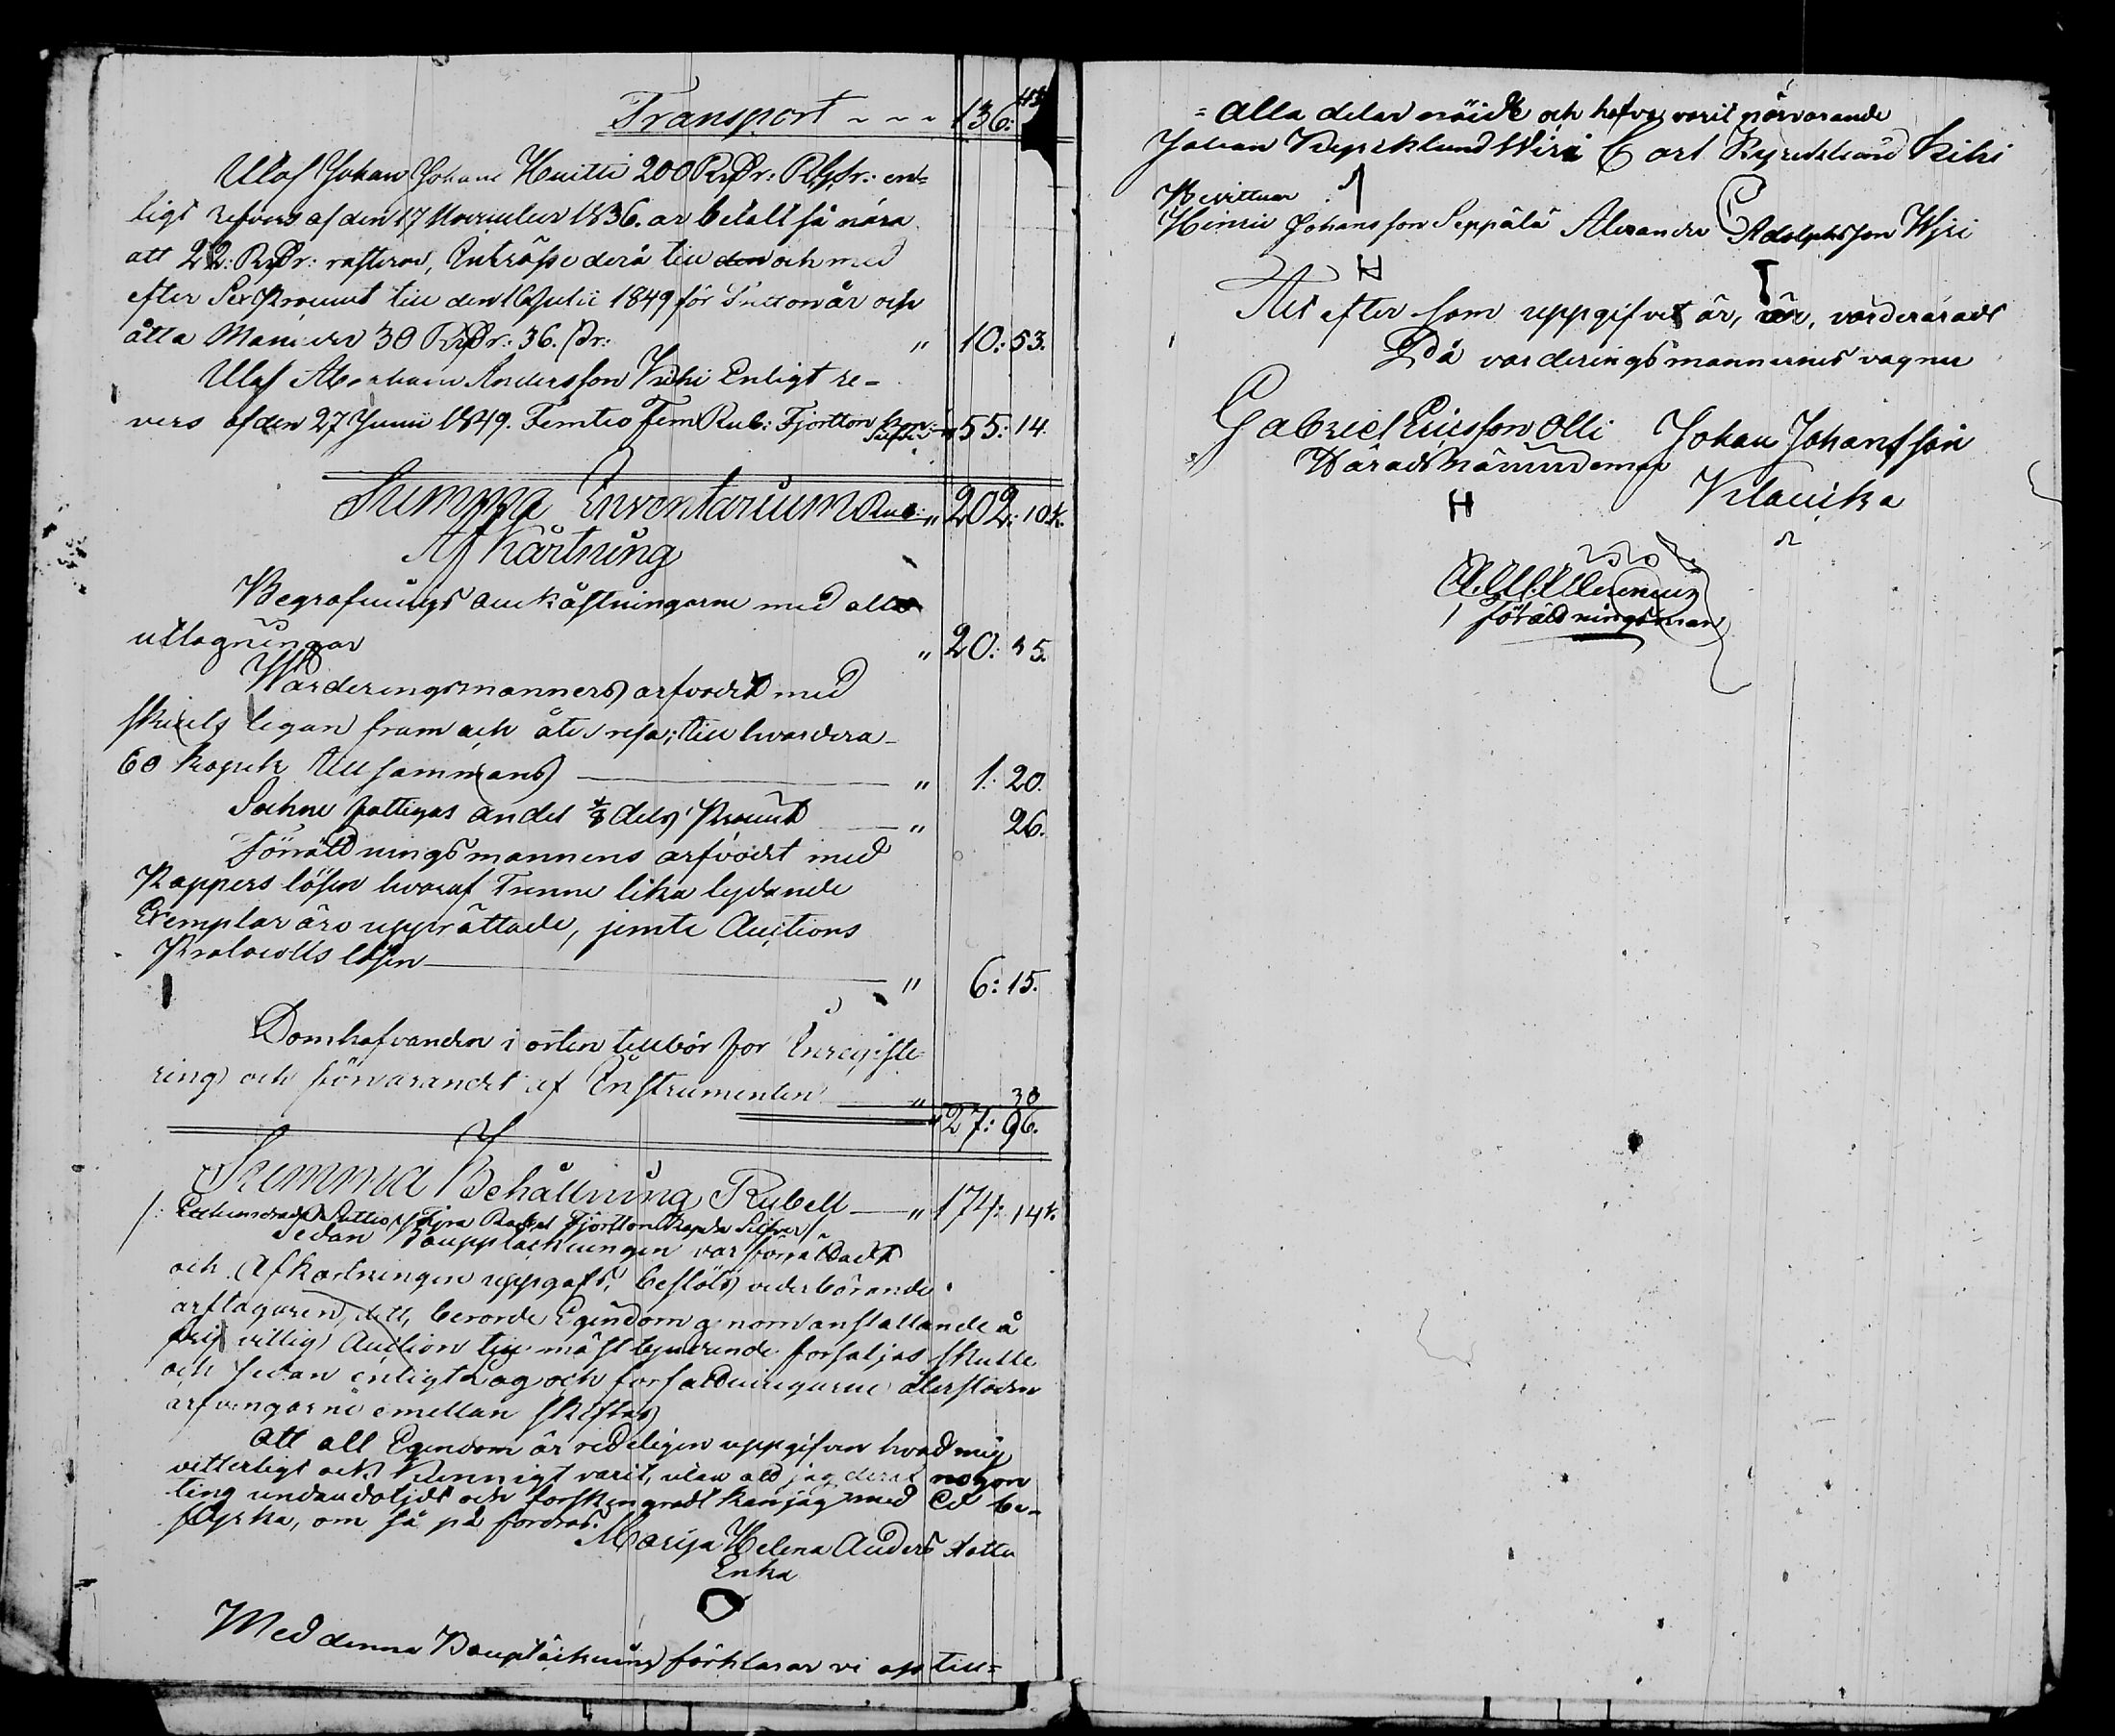 Transport - - - 136: 43
Ulaf Johan Johans Huitti 200 RDr: Rgs: en=
ligt refvers af den 17 November 1836. är betalt så nära
att 22: RDr: resterar, Intresse derå till den och med
efter Sex Procent till den 16 Julii 1849 för Tretton år och
åtta Månader 30 RDr: 36. sr: " 10: 53.
Ulaf Abraham Andersson Enligt re-
vers af den 27 Junii 1849. Femtio Fem Rub: Fjorton kop: Silfver " 55: 14.
Summa Inventarium Rub: " 202: 10 k.
Afkårtning
Begrafnings omkåstningarne med alla
utlagningar " 20: 55.
Wärderingsmanners arfvode med
skiuts legan fram och åter resa; till hvardera
60 kopek till sammans " 1: 20.
Sockne fattigas andel 1/8 dels Procent " 26.
Föräldningsmannens arfvode med
Pappers lösen hvaraf Trenne lika lydande
Exemplar äro upprättade, jemte Auctions
Protocolls lösen " 6: 15.
Domhafvanden i orten tillbör for Inregiste
ring och förvarandet af Instrumenten " 30
" 27: 96.
Summa Behållning Rubell " 174: 14 k.
/: Ett hundrade Suttio Fyra Rubel Fjortton kopek Silfver /
Sedan Bouppteckningen var förrättadt
och Afkortningen uppgafs, beslöts vederbörande
arftagaren, att, berorde Egendom genom anstallande å
frij villig Auction till mäst bjudende forsaljas skulle
och sedan enligt Lag och forfaldningarne återstoden
arfvingarne emellan skiftas
Att all Egendom är redeligen uppgifven hvad mig
vitterligt och kunnigt varit, utan att jag deraf någon
ting undandoljdt och forskingradt kan jag med Ed be-
styrka, om så på fordras.
Marija Helena Anders dotter
Enka
Med denna Bouptäckning förklarar vi oss till=
= alla delar nöide och hafva varit närvarande
Johan Wiri Carl Kihi
Hinric Johansson Seppälä Alexander Adolphsson Wiri
H T
Att efter som uppgifvet är, är, värderárads
På varderings mannernes vagner
Gabriel Ericsson Olli Johan Johansson
Härads nämndeman Klauika
H
föräldningsman